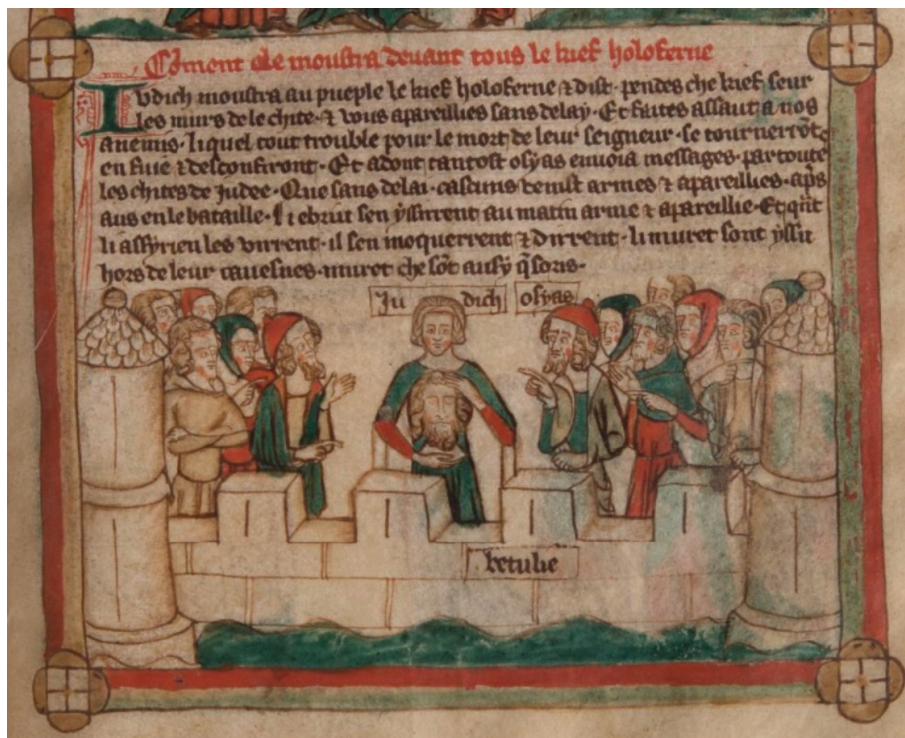 Coment ele moustra devant tous le kief holoferne
Iudich moustra au pueple le kief holoferne ⁊ dist · pendes che kief seur
les murs de le chite · ⁊ vous apareillies sans delay · Et faites assaut a nos
anemis · li quel tout trouble pour le mort de leur seigneur · se tournerrōt
en fuie ⁊ desconfiront · Et adont tantost osyas envoia messages · par toute
les chites de Judee · Que sans delai · cascuns venist armes ⁊ apareillies · aps
aus en le bataille · Li ebriu sen yssirent au matin arme ⁊ apareillie · Et qūt
li assyrien les virrent · il sen moquerrent ⁊ dirrent · li muret sont yssu
hors de leur cavesnes · muret che sōt ausy q̄ soris ·
Ju dich osyas
betulie